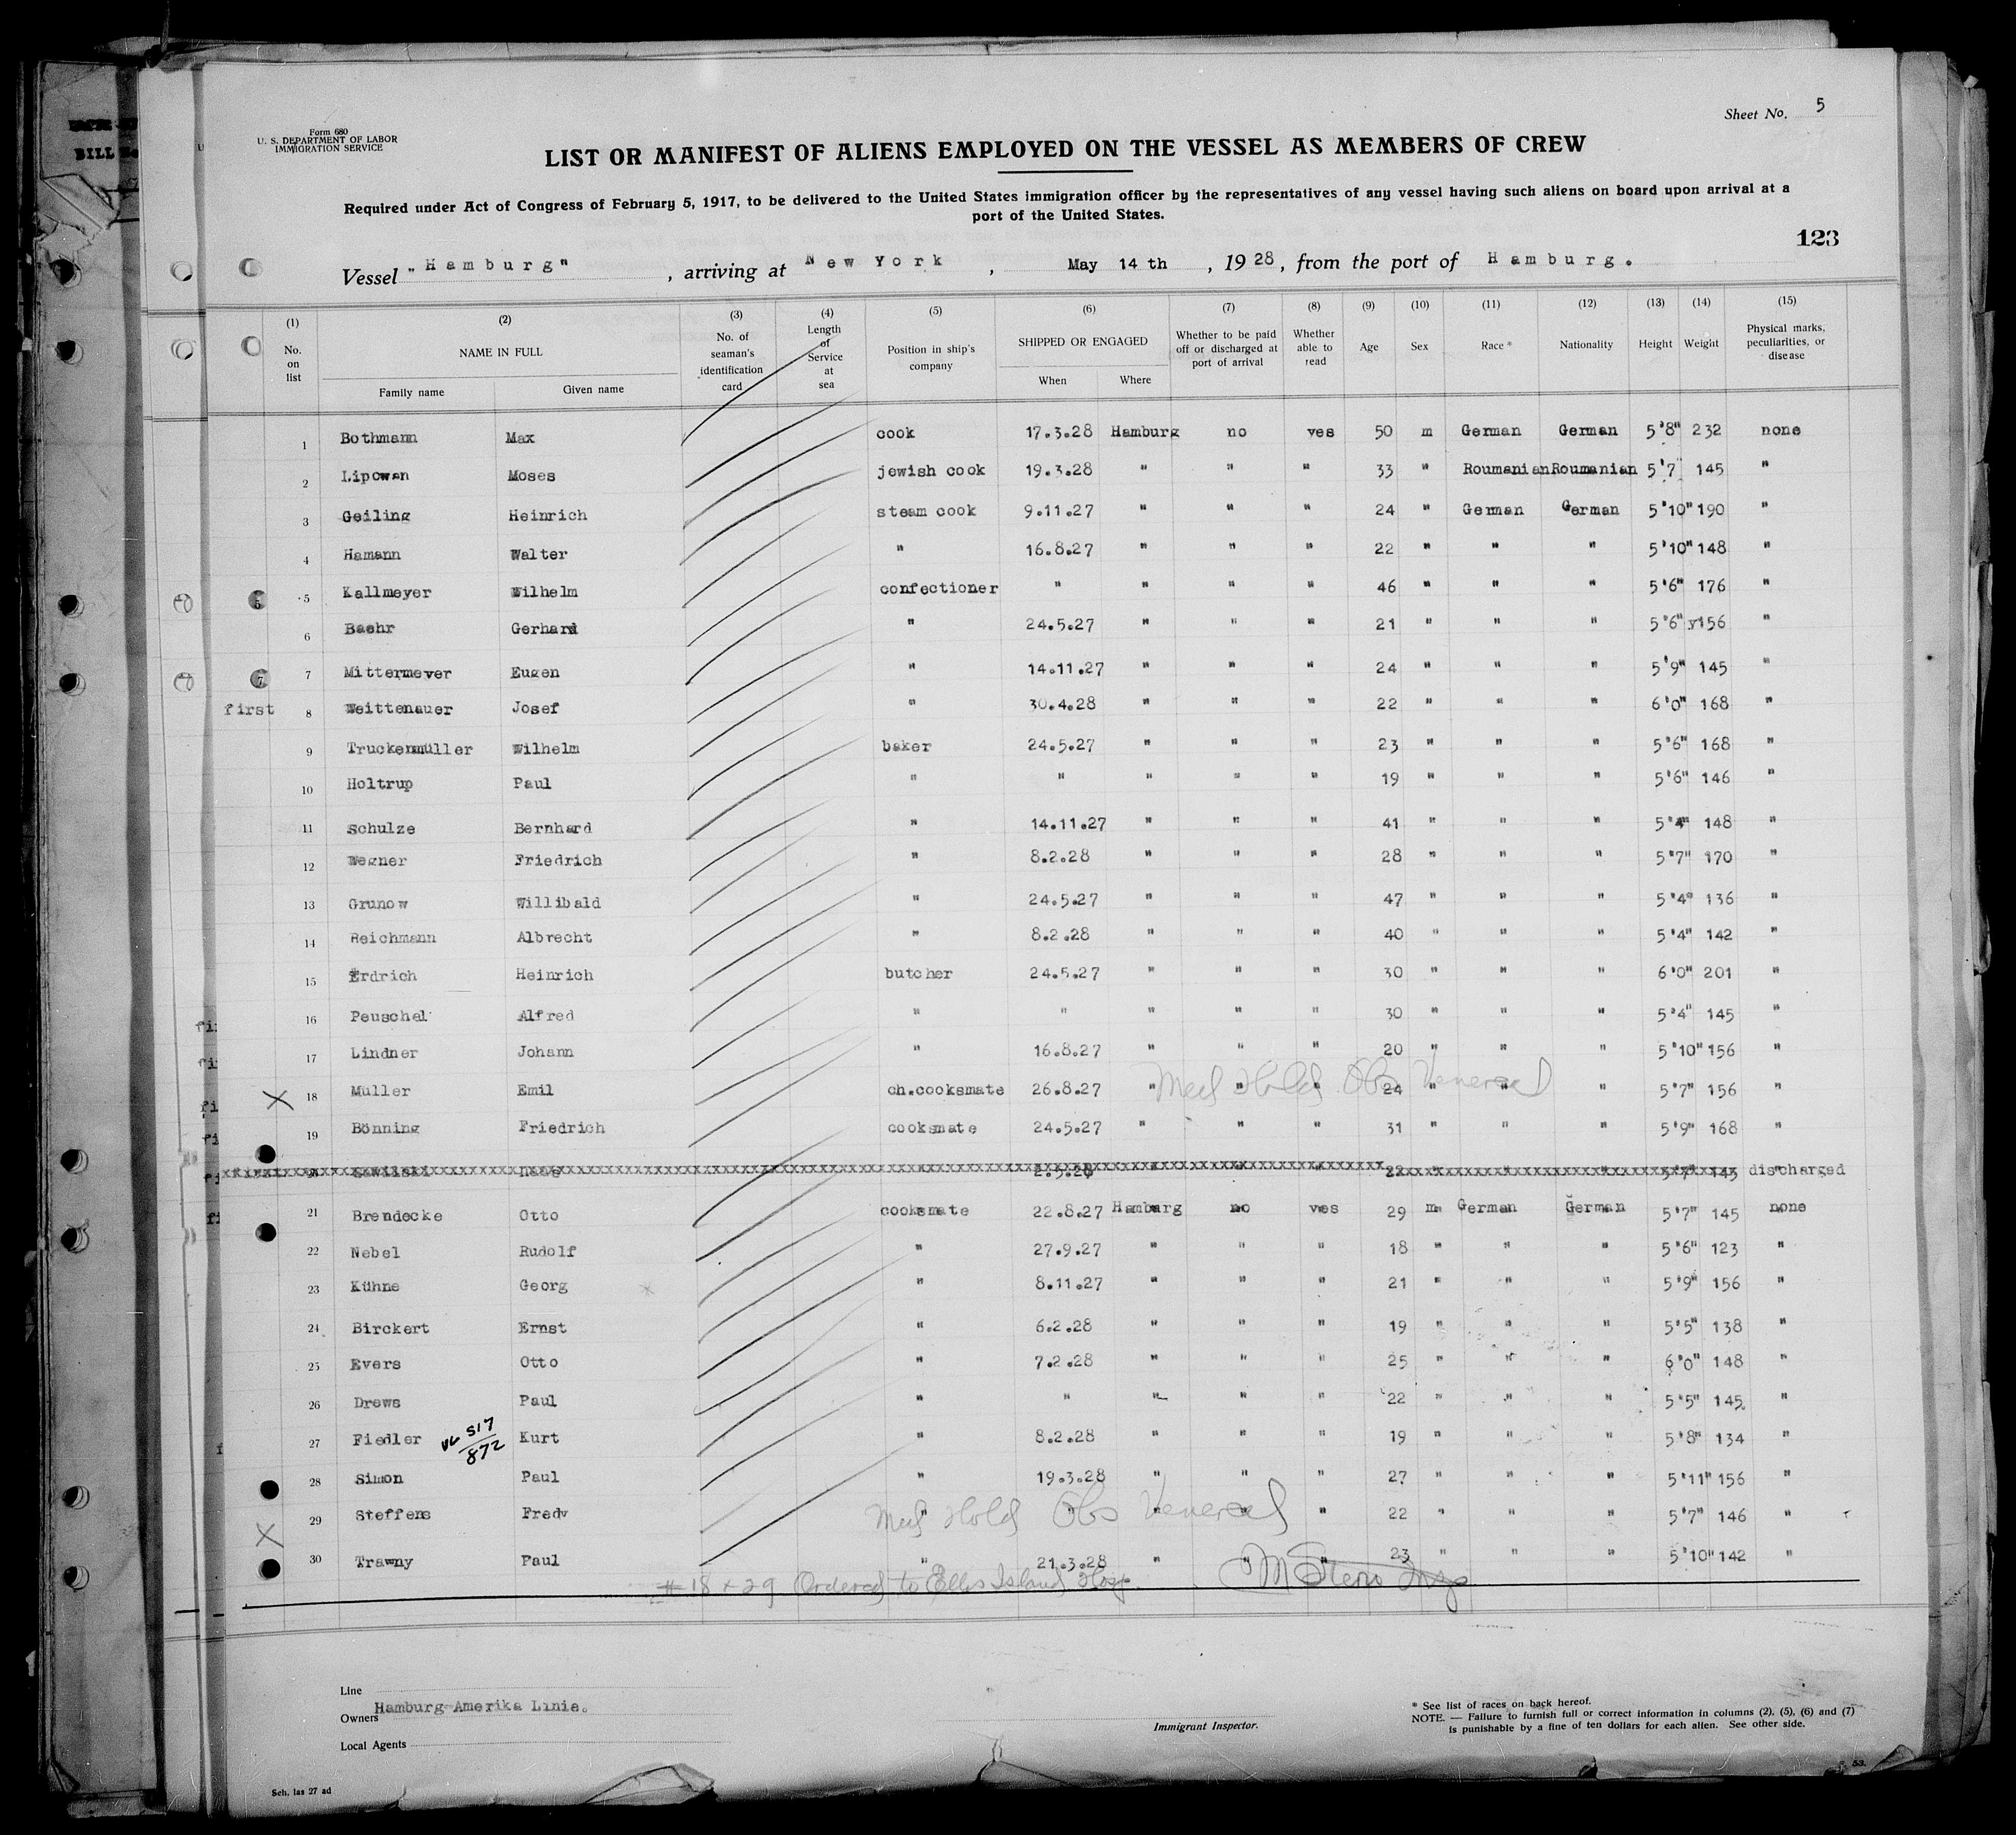 Sheet No. 5
Form 680
U. S. DEPARTMENT OF LABOR
IMMIGRATION SERVICE
LIST OR MANIFEST OF ALIENS EMPLOYED ON THE VESSEL AS MEMBERS OF CREW
Required under Act of Congress of February 5, 1917, to be delivered to the United States immigration officer by the representatives of any vessel having such aliens on board upon arrival at a
port of the United States.
123
Vessel "Hamburg" , arriving at New York , May 14 th , 1928, from the port of Hamburg.
(1) (2) (3) (4) (5) (6) (7) (8) (9) (10) (11) (12) (13) (14) (15)
No. on list NAME IN FULL Family name Given name No. of seaman's identification card Length of Service at sea Position in ship's company SHIPPED OR ENGAGED When Where Whether to be paid off or discharged at port of arrival Whether able to read Age Sex Race * Nationality Height Weight Physical marks, peculiarities, or disease
1 Bothmann Max cook 17.3.28 Hamburg no yes 50 m German German 5'8" 232 none
2 Lipowan Moses jewish cook 19.3.28 " " " 33 " Roumanian Roumanian 5'7 145 "
3 Geiling Heinrich steam cook 9.11.27 " " " 24 " German German 5'10" 190 "
4 Hamann Walter " 16.8.27 " " " 22 " " " 5'10" 148 "
5 Kallmeyer Wilhelm confectioner " " " " 46 " " " 5'6" 176 "
6 Baehr Gerhard " 24.5.27 " " " 21 " " " 5'6" 156 "
7 Mittermeyer Eugen " 14.11.27 " " " 24 " " " 5'9" 145 "
first 8 Weittenauer Josef " 30.4.28 " " " 22 " " " 6'0" 168 "
9 Truckenmüller Wilhelm baker 24.5.27 " " " 23 " " " 5'6" 168 "
10 Holtrup Paul " " " " " 19 " " " 5'6" 146 "
11 Schulze Bernhard " 14.11.27 " " " 41 " " " 5'4" 148 "
12 Wegner Friedrich " 8.2.28 " " " 28 " " " 5'7" 170 "
13 Grunow Willibald " 24.5.27 " " " 47 " " " 5'4" 136 "
14 Reichmann Albrecht " 8.2.28 " " " 40 " " " 5'4" 142 "
15 Erdrich Heinrich butcher 24.5.27 " " " 30 " " " 6'0" 201 "
16 Peuschel Alfred " " " " " 30 " " " 5'4" 145 "
17 Lindner Johann " 16.8.27 " " " 20 " " " 5'10" 156 "
X 18 Müller Emil ch.cooksmate 26.8.27 " " " 24 " " " 5'7" 156 "
Med Hold Obs Venereal
19 Bönning Friedrich cooksmate 24.5.27 " " " 31 " " " 5'9" 168 "
first 20 22 5'7" 145 discharged
21 Brendecke Otto cooksmate 22.8.27 Hamburg no yes 29 m German German 5'7" 145 none
22 Nebel Rudolf " 27.9.27 " " " 18 " " " 5'6" 123 "
23 Kühne Georg " 8.11.27 " " " 21 " " " 5'9" 156 "
24 Birckert Ernst " 6.2.28 " " " 19 " " " 5'5" 138 "
25 Evers Otto " 7.2.28 " " " 25 " " " 6'0" 148 "
26 Drews Paul " " " " " 22 " " " 5'5" 145 "
27 Fiedler 517/872 Kurt " 8.2.28 " " " 19 " " " 5'8" 134 "
28 Simon Paul " 19.3.28 " " " 27 " " " 5'11" 156 "
X 29 Steffens Fredy " " " " " 22 " " " 5'7" 146 "
Med Hold Obs Venereal
30 Trawny Paul " 21.3.28 " " " 23 " " " 5'10" 142 "
# 18 + 29 Ordered to Ellis Island Hosp.
Line
Hamburg-Amerika Linie.
Owners
Local Agents
Immigrant Inspector.
* See list of races on back hereof.
NOTE. — Failure to furnish full or correct information in columns (2), (5), (6) and (7)
is punishable by a fine of ten dollars for each alien. See other side.
Sch. las 27 ad